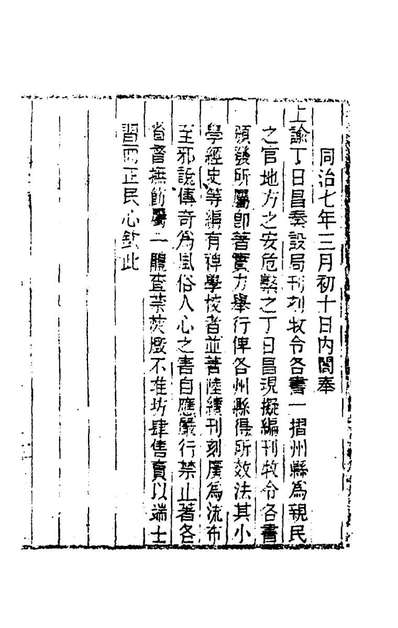 同治七年三月初十日內閣奉
上諭丁日昌奏設局刊刻牧令各書一摺州縣為親民
之官地方之安危繫之丁日昌現擬編刊牧令各書
頒發所屬卽著實力舉行俾各州縣得所效法其小
學經史等編有裨學校者並著陸續刊刻廣為流布
至邪說傳奇為風俗人心之害自應嚴行禁止著各
省督撫飭屬一體查禁焚燬不准坊肆售賣以端士
習而正民心欽此